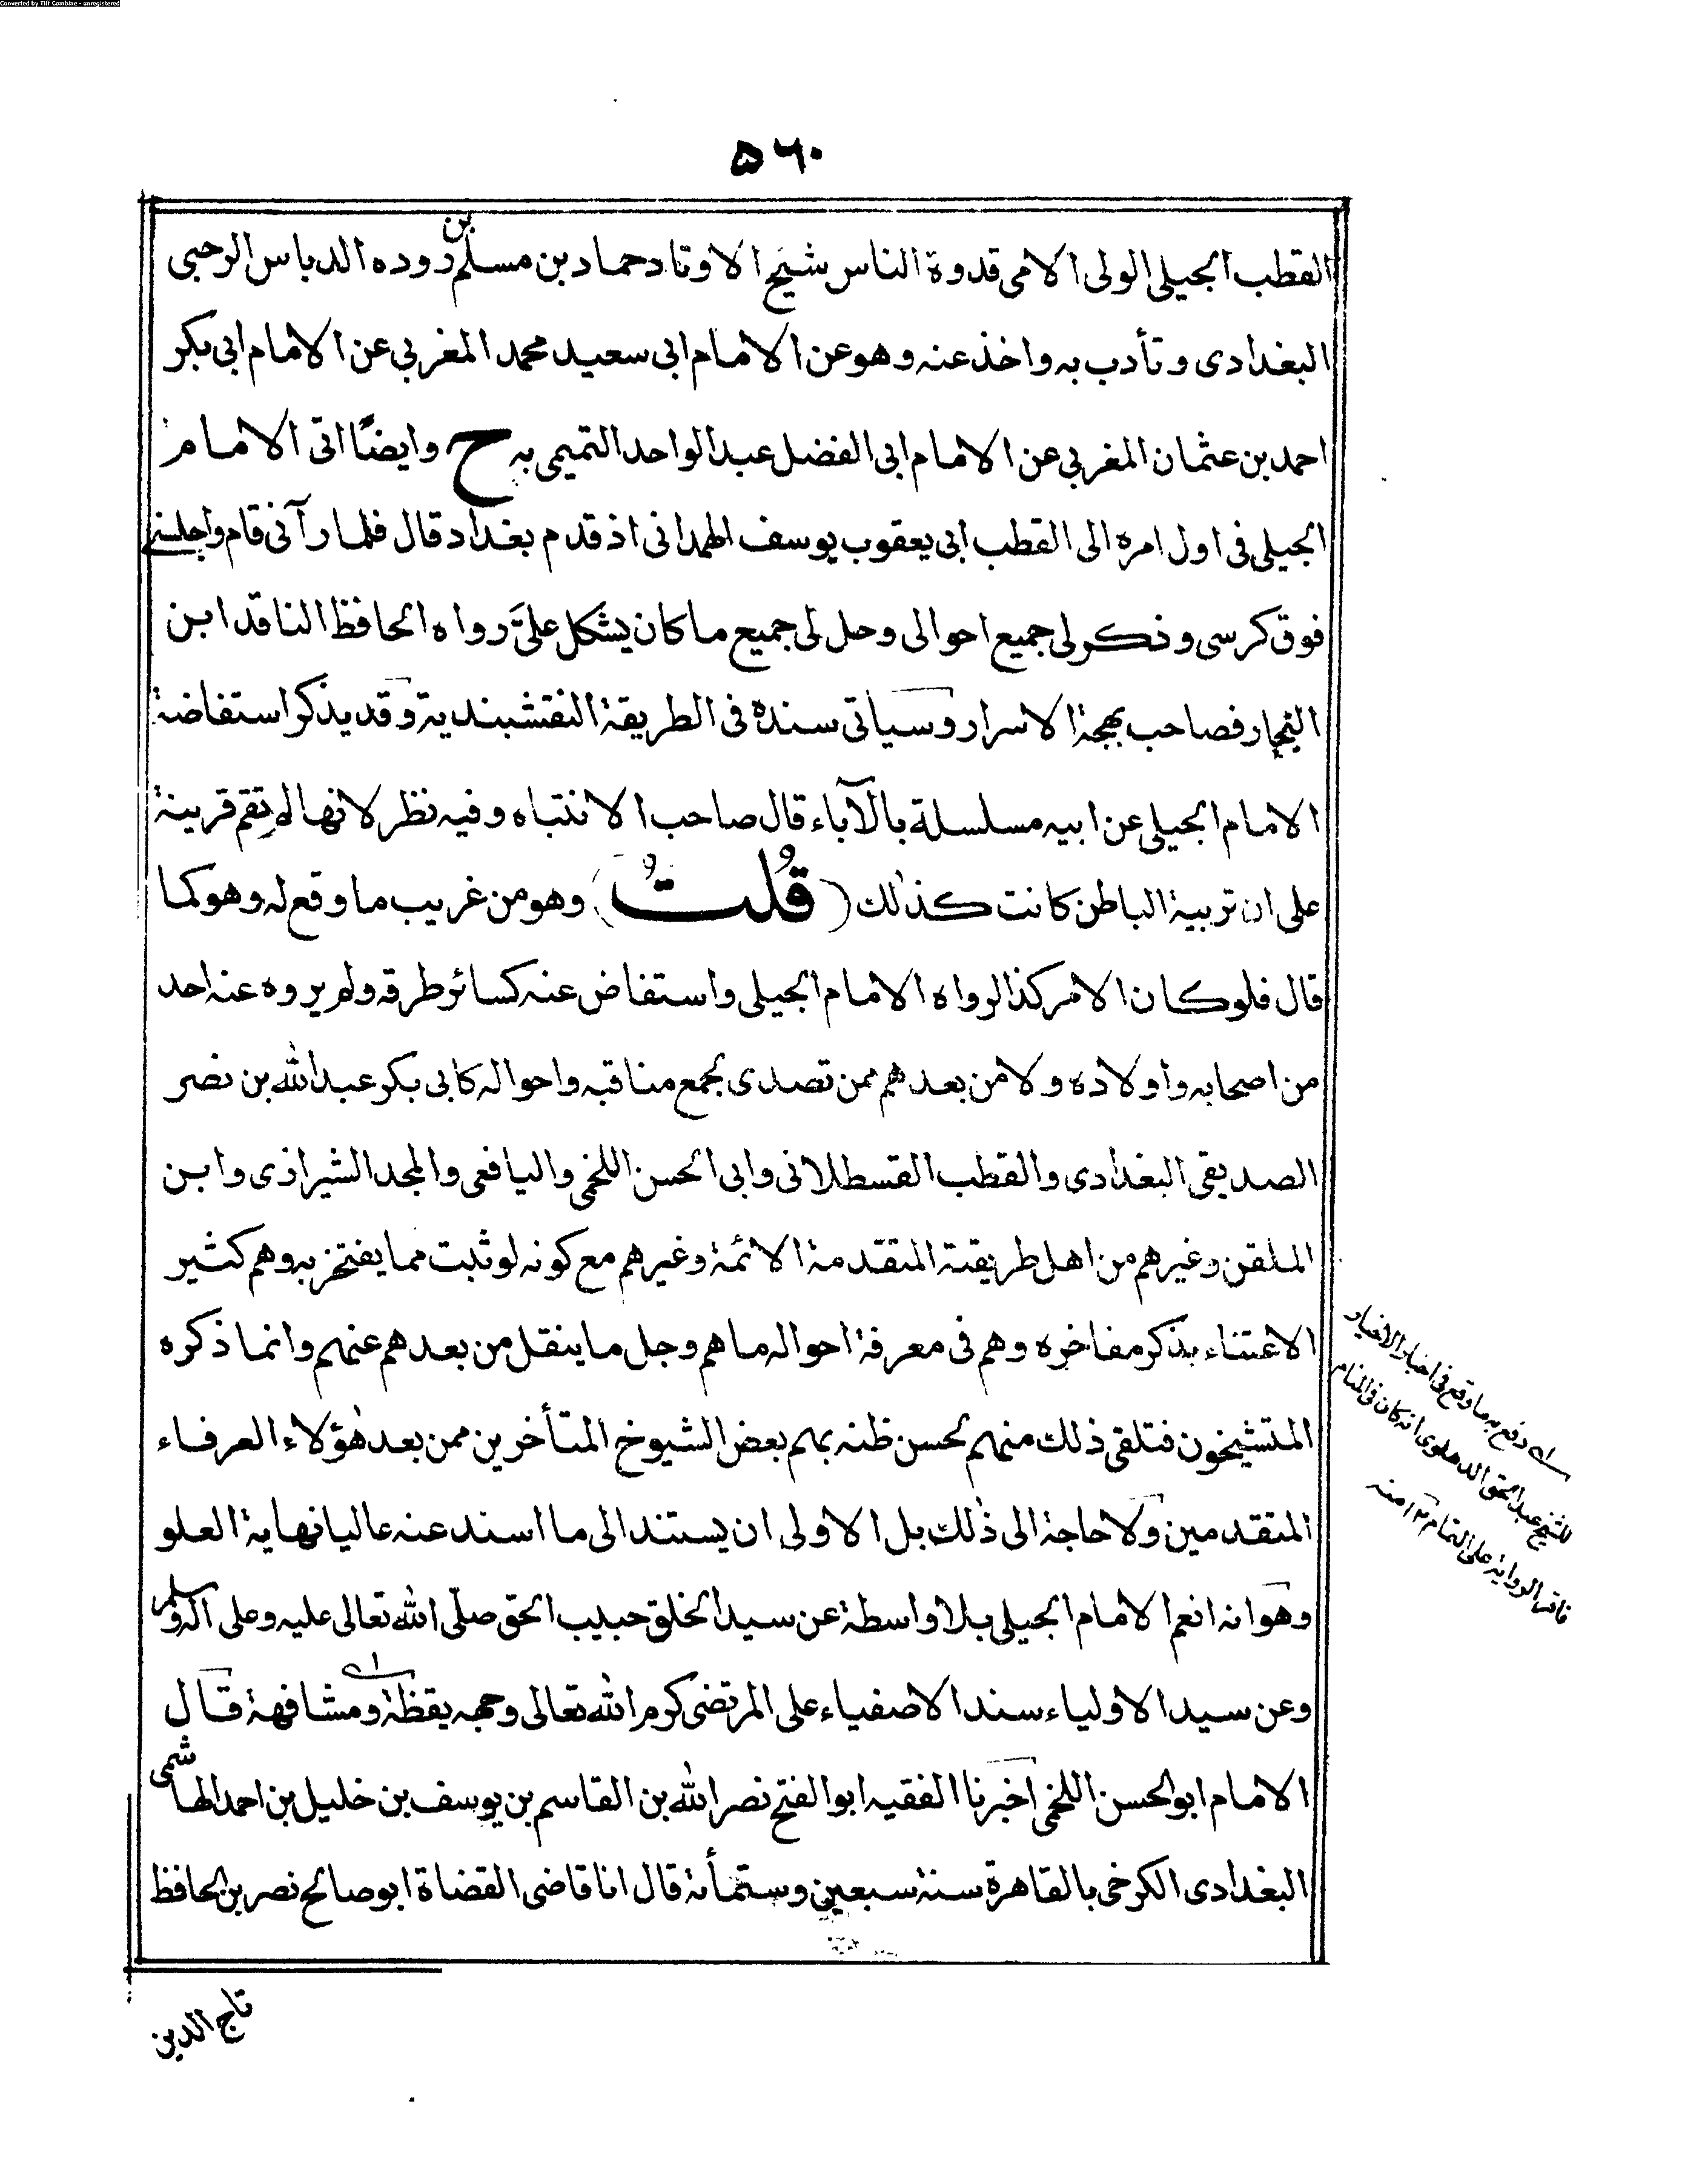 Converted by Tiff Combine - unregistered
۵۶۰
القطب الجيلى الولى الامى قدوة الناس شيخ الاوتاد حماد بن مسلم بن دوده الدباس الرحبى
البغدادى وتأدب به واخذ عنه وهو عن الامام ابى سعيد محمد المغربى عن الامام ابى بكر
احمد بن عثمان المغربى عن الامام ابى الفضل عبد الواحد التميمى به ح وايضًا اتى الامام
الجيلى فى اول امره الى القطب ابى يعقوب يوسف الهمدانى اذ قدم بغداد قال فلما رآنى قام واجلسنى
فوق كرسى وذكر لى جميع احوالى وحل لى جميع ما كان يشكل علىَّ رواه الحافظ الناقد ابن
النجار فصاحب بهجة الاسرار وسياتى سنده فى الطريقة النقشبندية وقد يذكر استفاضة
الامام الجيلى عن ابيه مسلسلة بالآباء قال صاحب الانتباه وفيه نظر لانها لم تقم قرينة
على ان تربية الباطن كانت كذلك (قُلتُ) وهو من غريب ما وقع له وهو كما
قال فلو كان الامر كذا لرواه الامام الجيلى واستفاض عنه كسائر طرقه ولم يروه عنه احد
من اصحابه وأولاده ولا من بعدهم ممن تصدى بجمع مناقبه واحواله كابى بكر عبد الله بن نصر
الصديقى البغدادى والقطب القسطلانى وابى الحسن اللخمى واليافعى والمجد الشيرازى وابن
الملقن وغيرهم من اهل طريقته المتقدمة الائمة وغيرهم مع كونه لو ثبت مما يفتخر به وهم كثير
الاعتناء بذكر مفاخره وهم فى معرفة احواله ما هم وجل ما ينقل من بعدهم عنهم وانما ذكره
المتشيخون فتلقى ذلك منهم لحسن ظنه بهم بعض الشيوخ المتأخرين ممن بعد هؤلاء العرفاء
المتقدمين ولا حاجة الى ذلك بل الاولى ان يستند الى ما اسند عنه عاليا نهاية العلو
وهو انه انعم الامام الجيلى بلا واسطة عن سيد الخلق حبيب الحق صلّى الله تعالى عليه وعلى آله وسلم
وعن سيد الاولياء سند الاصفياء على المرتضى كرم الله تعالى وجهه يقظة ومشافهة قال
الامام ابو الحسن اللخمى اخبرنا الفقيه ابو الفتح نصر الله بن القاسم بن يوسف بن خليل بن احمد الهاشمى
البغدادى الكرخى بالقاهرة سنة سبعين وستمأة قال انا قاضى القضاة ابو صالح نصر بن الحافظ
تاج الدين
اے دفع به ما وقع فى اخبار الاخيار
للشيخ عبد الحق الدهلوى انه كان فى المنام
الرواية على التمام ۱۲ منه